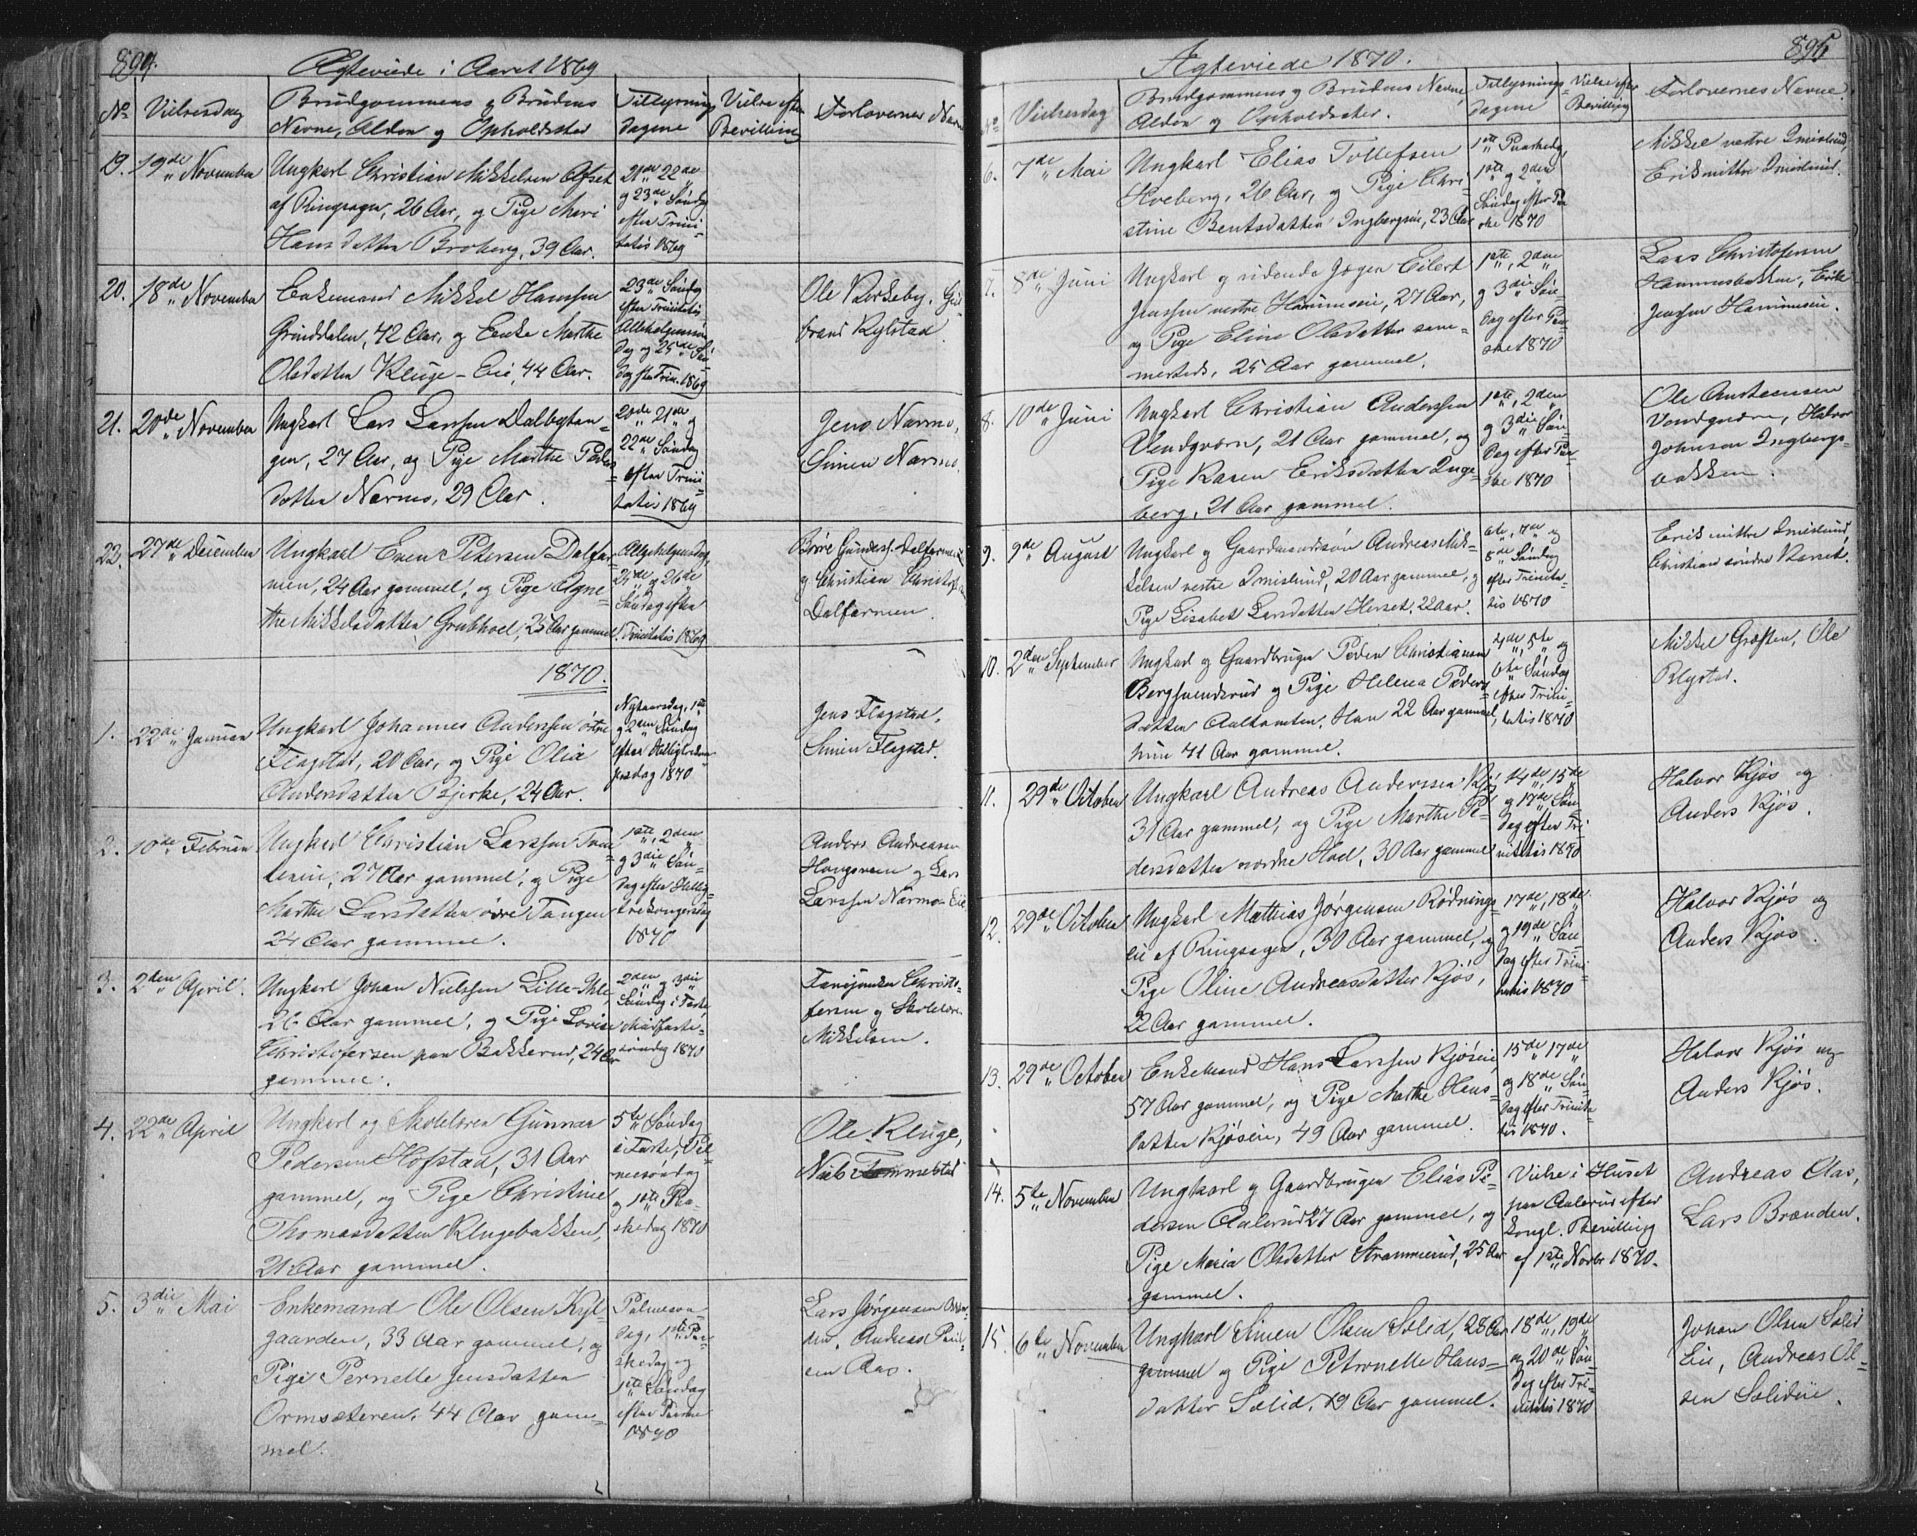 894.
Ægteviede i Aaret 1869
No
Vielsesdag
Brudgommens og Brudens
Navne, Alder og Opholdssted
Tillysnings
dagene
Vielse efter
Bevilling
Forlovernes Navne
19.
19de November
Ungkarl Christian Mikkelsen
af Ringsager, 26 Aar, og Pige Mari
Hansdatter Broberg, 39 Aar.
21de 22de
og 23de Søndag
efter Trini-
tatis 1869
20.
18de November
Enkemand Mikkel Hanssen
Grinddalen, 42 Aar, og Enke Marthe
Olsdatter Kluge-Eie, 44 Aar.
23de Søndag
efter Trinitatis
Allehelgens
dag og 25de Søn
dag efter Trin. 1869
Ole Korseby,
brand Rylstad
21.
20de November
Ungkarl Lars Larssen Dalbytan-
gen, 27 Aar, og Pige Marthe Peders
datter Narmo, 29 Aar.
20de 21de og
22de Søndag
efter Trini-
tatis 1869
Jens Narmo,
Simen Narmo.
22.
27de December
Ungkarl Even Petersen Dalfar-
men, 24 Aar gammel, og Pige Agne-
the Mikkelsdatter Grubhoel, 25 Aar gammel.
25de og 26de
Søndag efter
Trinitatis 1869
Børe Gundersen Dalfarmen
og Christian Christof
Dalfarmen
1870.
1.
22de Januar
Ungkarl Johannes Anderssen østre
Flagstad, 20 Aar, og Pige Olia
Andersdatter Bjerke, 24 Aar.
Nytaarsdag, 1ste
og 2den Søndag
efter Helligtrekon-
gersdag 1870
Jens Flagstad,
Simen Flagstad.
2.
10de Februar
Ungkarl Christian Larssen
27 Aar gammel, og Pige
Marthe Larsdatter øvre Tangen
24 Aar gammel.
1ste, 2den
og 3die Søn-
dag efter Hellig-
trekongersdag
1870
Anders Andreassen
og Lars
Larssen Narmo Eie
3.
2den April.
Ungkarl Johan Nielssen Lille-Ihle,
26 Aar gammel, og Pige Lovise
Christofersen paa Bakkerud, 24 Aar
gammel.
2den og 3die
Søndag i Faste
Midfaste-
søndag 1870
Christo-
fersen og Skolelærer
Mikkelsen.
4.
22de April
Ungkarl og Skolelærer Gunnar
Pedersen Hofstad, 31 Aar
gammel, og Pige Christine
Thomasdatter Klugebakken,
21 Aar gammel.
5te Søndag
i Faste, Pal-
mesøndag
og 1ste Paa-
skedag 1870
Ole Kluge,
Niels Tommelstad
5.
3die Mai
Enkemand Ole Olsen Kyl-
gaarden, 33 Aar gammel, og
Pige Pernelle Jensdatter
Ormsæteren, 44 Aar gam-
mel.
Palmesøn
dag, 1ste Paa-
skedag og
1ste Søndag
efter Paaske
1870
Lars Jørgensen
Andreas
Aas.
895
Ægteviede 1870.
No
Vielsesdag
Brudgommens og Brudens Navne,
Alder og Opholdssted.
Tillysnings-
dagene
Vielse efter
Bevilling
Forlovernes Navne.
6.
7de Mai
Ungkarl Elias Tollefsen
Hveberg, 26 Aar, og Pige Chri-
stine Bentsdatter Ingbergseie, 23 Aar
1ste Paaskedag
1ste og 2den
Søndag efter Paa-
ske 1870
Mikkel vestre Imislund
Erik mittre Imislund.
7.
8de Juni
Ungkarl og ridende Jæger Eilert
Jenssen vestre Hammerseie, 27 Aar,
og Pige Eline Olsdatter sam-
mesteds, 25 Aar gammel.
1ste, 2den
og 3die Søn-
dag efter Paa-
ske 1870
Lars Christofersen
Hammesbakken, Erik
Jenssen Hammerseie.
8.
10de Juni
Ungkarl Christian Anderssen
Vendqværn, 21 Aar gammel, og
Pige Karen Eriksdatter Inge-
berg, 21 Aar gammel.
1ste, 2den
og 3die Søn-
dag efter Paa-
ske 1870
Ole Anstensen
Vendqværn, Halvor
Johnsen Ingbergs-
bakken.
9.
9de August
Ungkarl og Gaardmandssøn Andreas Mik-
kelsen vestre Imislund, 20 Aar gammel, og
Pige Lisabet Larsdatter Herset, 22 Aar.
6te, 7de og
8de Søndag
efter Trinita-
tis 1870
Erik mittre Imislund,
Christian søndre
10.
2den September
Ungkarl og Gaardbruger Peder Christiansen
Bergsvenderud og Pige Helena Peders
datter Aalkamten, Han 22 Aar gammel,
hun 41 Aar gammel.
4de, 5te og
6te Søndag
efter Trini-
tatis 1870
Mikkel Græften, Ole
Rlystad.
11.
29de October
Ungkarl Andreas Anderssen Kjøs
31 Aar gammel, og Pige Marthe Pe-
dersdatter nordre Hoel, 30 Aar gammel
14de, 15de
og 17de Søn-
dag efter Tri-
nitatis 1870
Halvor Kjøs og
Anders Kjøs.
12.
29de October
Ungkarl Mathias Jørgensen Rødnings-
eie af Ringsager, 30 Aar gammel, og
Pige Oline Andreasdatter Kjøs,
22 Aar gammel.
17de, 18de
og 19de Søn-
dag efter Trini-
tatis 1870
Halvor Kjøs og
Anders Kjøs.
13.
29de October
Enkemand Hans Larssen Kjøseie,
57 Aar gammel, og Pige Marthe Hans-
datter Kjøseie, 49 Aar gammel.
15de 17de
og 18de Søn-
dag efter Trinita-
tis 1870.
Halvor Kjøs og
Anders Kjøs.
14.
5te November
Ungkarl og Gaardbruger Elias Pe-
dersen Aalerud 27 Aar gammel, og
Pige Maria Olsdatter Strammerud, 25 Aar
gammel.
Vielse i Huset
paa Aalerud efter
Kongl. Bevilling
af 1ste Novbr 1870.
Andreas Aas,
Lars Brænden.
15.
6te November
Ungkarl Simen Olsen Sælid, 28 Aar
gammel og Pige Petronelle Hans-
datter Sælid, 29 Aar gammel.
18de, 19de
og 20de Søn-
dag efter Tri-
nitatis 1870
Johan Olsen Sælid
Eie, Andreas Ol-
sen Sælideie.